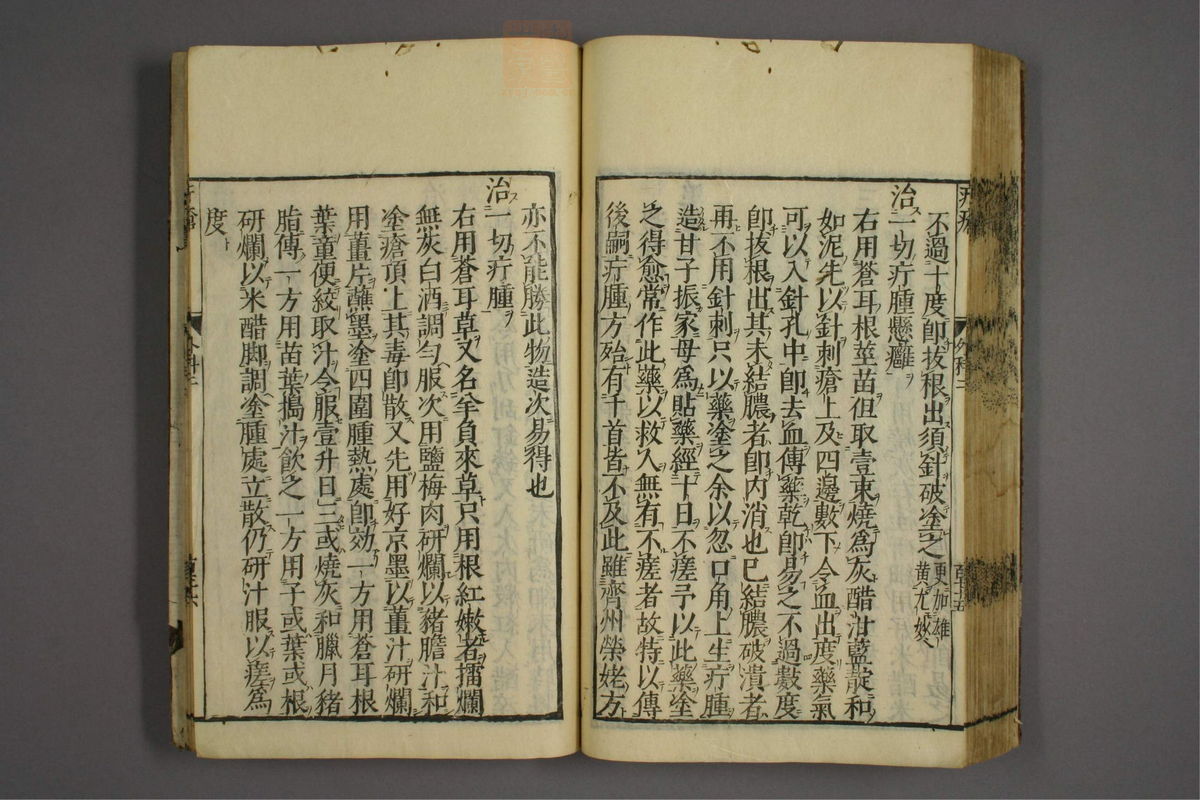 不過十度卽拔根出須針破塗之更加雄黃尤妙
治一切疔腫懸癰
右用蒼耳根莖苗但取壹束燒爲灰醋泔藍靛和
如泥先以針刺瘡上及四邊數下令血出度藥氣
可以入針孔中卽去血傳藥乾卽易之不過數度
卽拔根出其未結膿者卽内消也已結膿破潰者
再不用針刺只以藥塗之余以忽口角上生疔腫
造甘子振家母爲貼藥經十日不瘥予以此藥塗
之得愈常作此藥以救人無有不瘥者故特以傳
後嗣疔腫方殆有千首皆不及此雖齊州榮姥方
亦不能勝此物造次易得也
治一切疔腫
右用蒼耳草又名羊負來草只用根紅嫩者擂爛
無灰白酒調勻服次用鹽梅肉研爛以豬膽汁和
塗瘡頂上其毒卽散又先用好京墨以薑汁研爛
用薑片蘸墨塗四圍腫熱處卽効一方用蒼耳根
葉童便絞取汁令服壹升日三或燒灰和臘月豬
脂傳一方用苗葉搗汁飲之一方用子或葉或根
研爛以米醋脚調塗腫處立散仍研汁服以瘥爲
度